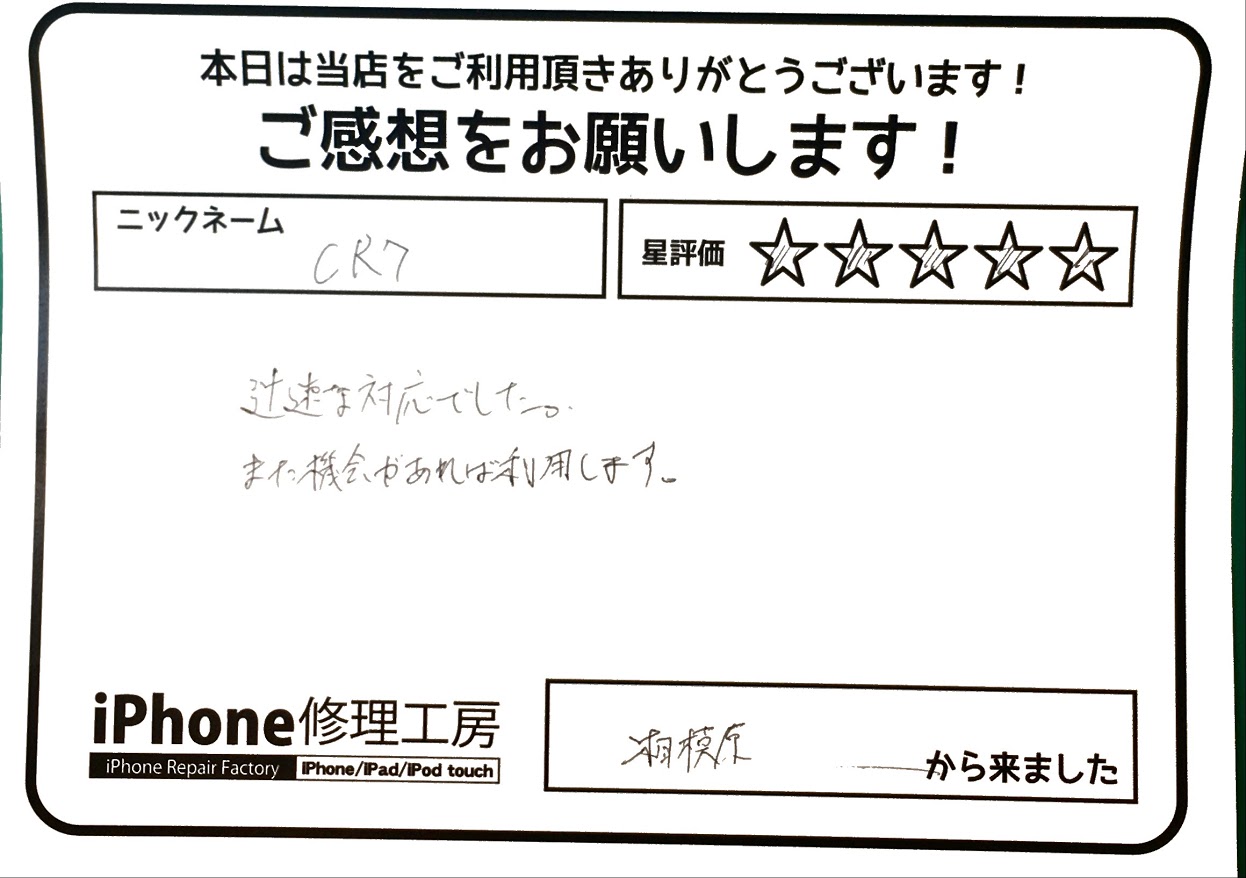 本日は当店をご利用頂きありがとうございます！
ご感想をお願いします！
ニックネーム
CR7
星評価 ☆☆☆☆☆
迅速な対応でした。
また機会があれば利用します。
iPhone修理工房
iPhone Repair Factory iPhone/iPad/iPod touch
相模原 から来ました